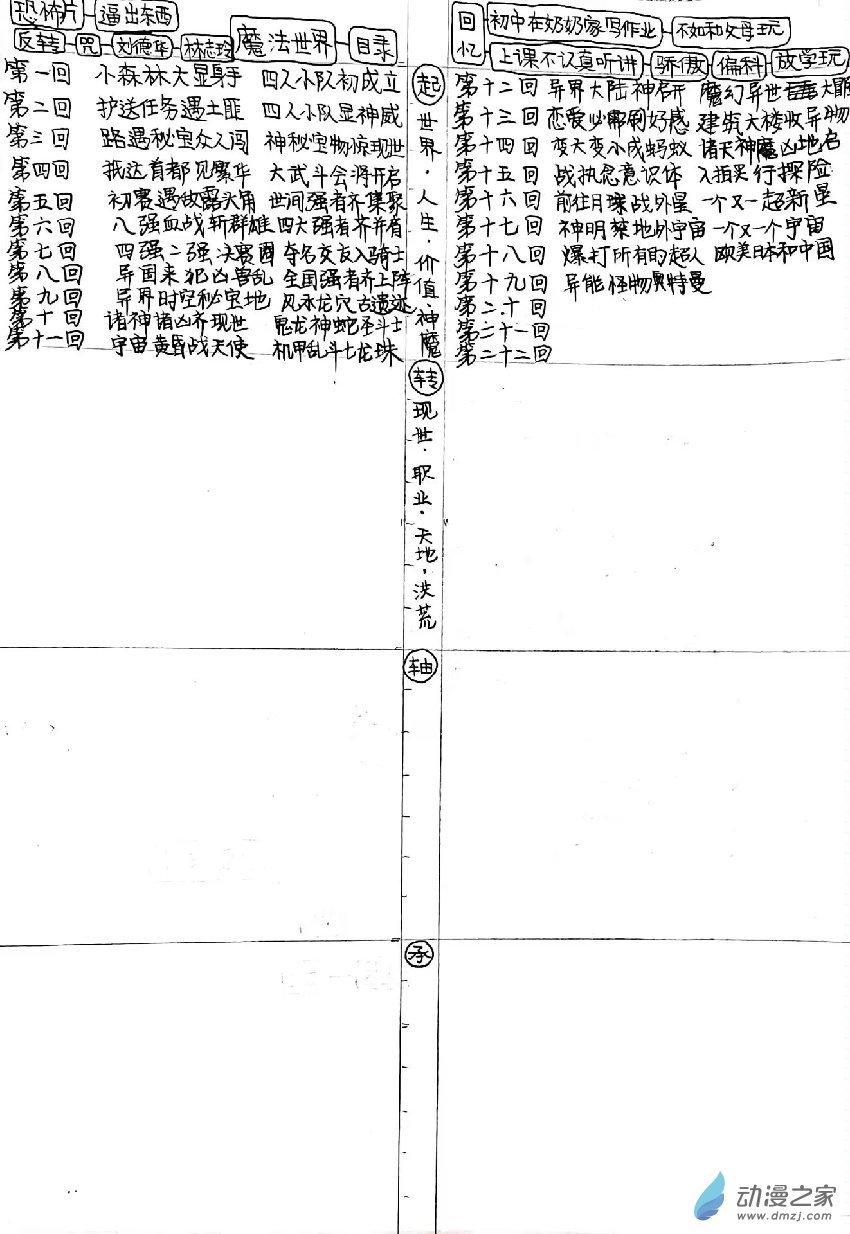 恐怖片 逼出东西
反转 咒 刘德华 林志玲 魔法世界 目录
第一回 小森林大显身手 四人小队初成立
第二回 护送任务遇土匪 四人小队显神威
第三回 路遇秘宝众人闯 神秘宝物惊现世
第四回 抵达首都见繁华 大武斗会将开启
第五回 初赛遇敌露头角 世间强者齐集聚
第六回 八强血战斩群雄 四大强者齐并肩
第七回 四强二强决赛圈 夺名交友入骑士
第八回 异国来犯凶兽乱 全国强者齐上阵
第九回 异界时空秘宝地 风水龙穴古遗迹
第十回 诸神诸凶齐现世 鬼龙神蛇圣斗士
第十一回 宇宙黄昏战天使 机甲乱斗七龙珠
起
世界·人生·价值·神魔
转
现世·职业·天地·洪荒
轴
承
回忆 初中在奶奶家写作业 不如和父母玩
上课不认真听讲 骄傲 偏科 放学玩
第十二回 异界大陆神启开 魔幻异世大冒
第十三回 恋爱必需刷好感 建筑大楼收异物
第十四回 变大变小成蚂蚁 诸天神魔凶地启
第十五回 战执念意识体 入指买行探险
第十六回 前往月球战外星 一个又一超新星
第十七回 神明策地外宇宙 一个又一个宇宙
第十八回 爆打所有的超人 欧美日本和中国
第十九回 异能怪物奥特曼
第二十回
第二十一回
第二十二回
动漫之家
www.dmzj.com